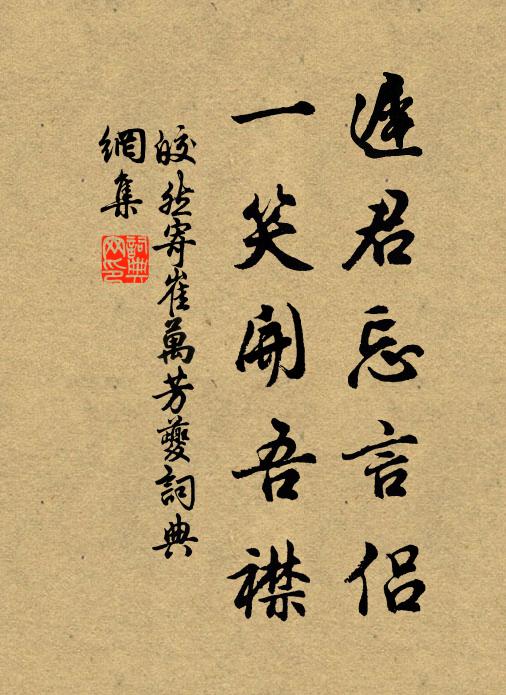 遲君忘言侶
一笑開吾襟
皎然寄崔萬芳夔詞典
網集
詞典
网印